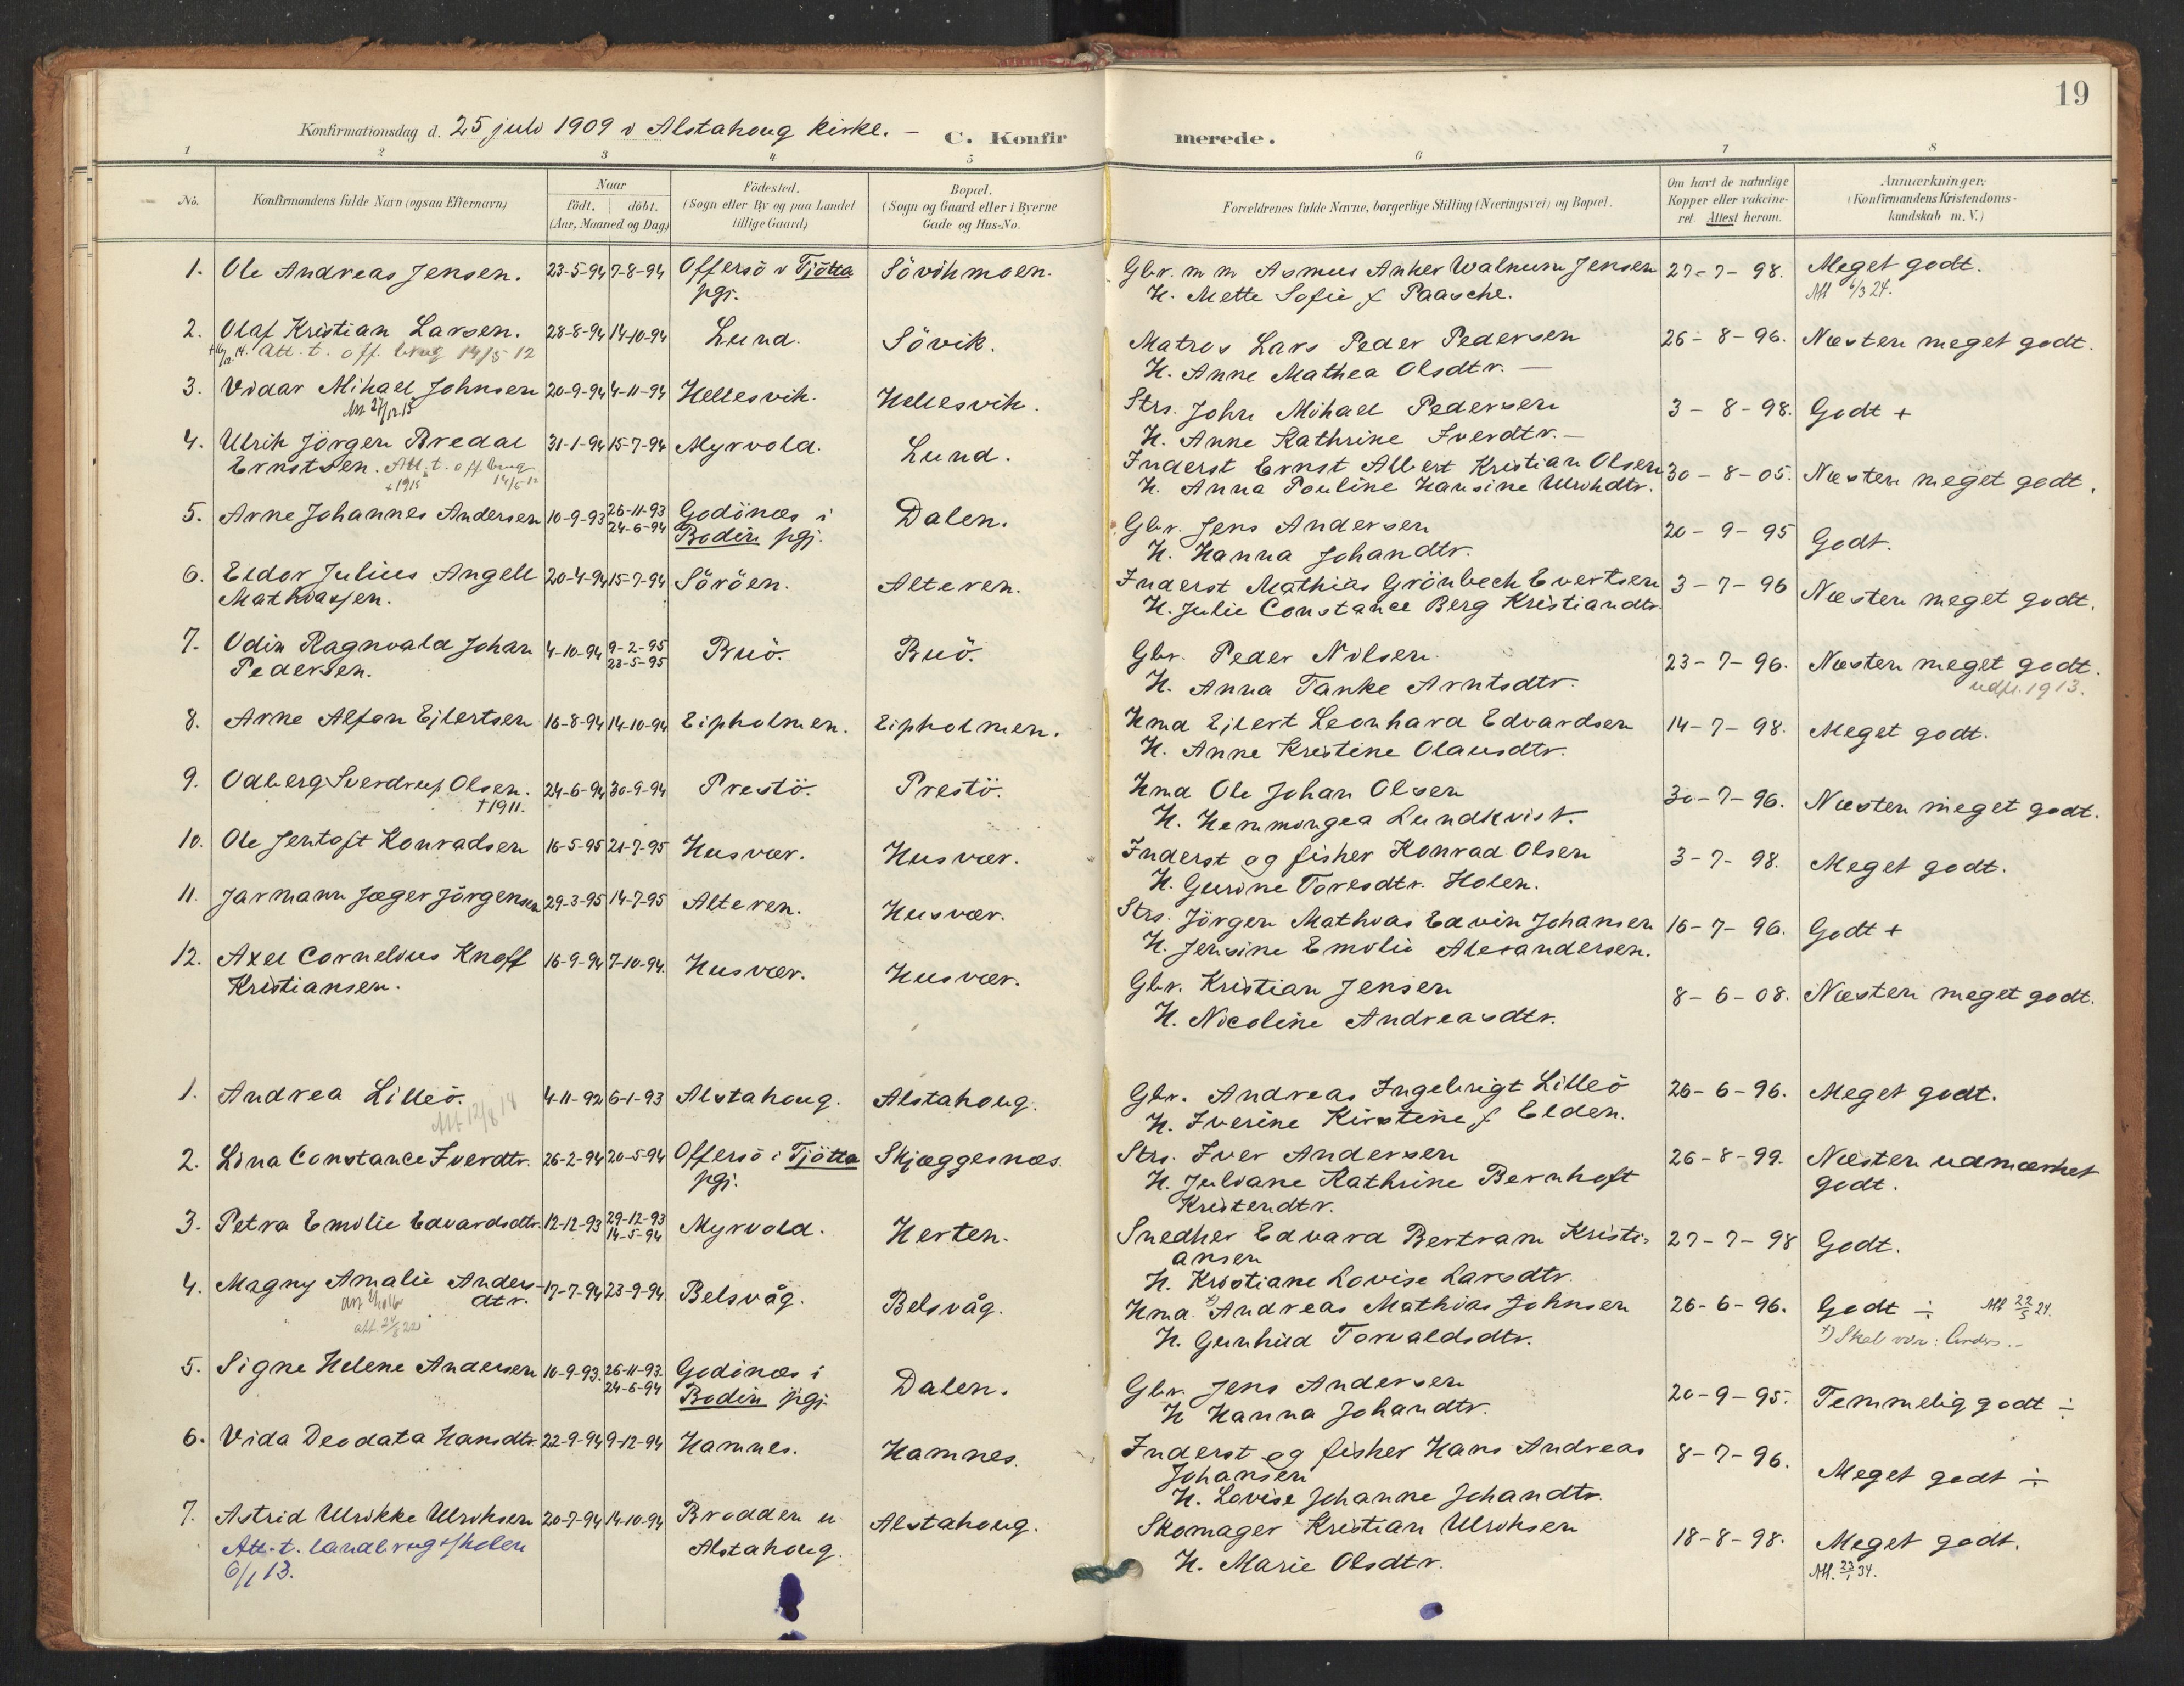 19
Konfirmationsdag d. 25 juli 1909 i Alstahoug kirke. –
C. Konfirmerede.
1 2 3 4 5 6 7 8
No.
Konfirmandens fulde Navn (ogsaa Efternavn)
Naar
født. døbt.
(Aar, Maaned og Dag)
Födested.
(Sogn eller By og paa Landet
tillige Gaard)
Bopæl.
(Sogn og Gaard eller i Byerne
Gade og Hus-No.
Forældrenes fulde Navne, borgerlige Stilling (Næringsvei) og Bopæl.
Om havt de naturlige
Kopper eller vakcine-
ret. Attest herom.
Anmærkninger:
(Konfirmandens Kristendoms-
kundskab m. V.)
1. Ole Andreas Jensen. 23-5-94 7-8-94 Offersö i Tjötta Sövikmoen. Gbr. m m Asmus Anker Walnum Jensen 27-7-98. Meget godt.
pgj. H. Mette Sofie f Paasche. Att 6/3 24.
2. Olaf Kristian Larsen. 28-8-94 14-10-94 Lund. Sövik. Matros Lars Peder Pedersen 26-8-96. Næsten meget godt.
Att. t. off. brug 14/5 12 H. Anne Mathea Olsdtr. –
3. Vidar Mikael Johnsen 20-9-94 4-11-94 Hellesvik. Hellesvik. Strs. John Mikael Pedersen 3-8-98. Godt +
H. Anne Kathrine Iverdtr. –
4. Ulrik Jörgen Bredal 31-1-94 15-7-94 Myrvold. Lund. Inderst Ernst Albert Kristian Olsen 30-8-05. Næsten meget godt.
Ernstsen. Att. t. off brug 14/5 12 H. Anna Pouline Hansine Ulrikdtr.
+ 1915
5. Arne Johannes Andersen 10-9-93 26-11-93 Godönes i Dalen. Gbr. Jens Andersen 20-9-95 Godt.
24-6-94 Bodin pgj. H. Hanna Johandtr.
6. Eldor Julius Angell 20-4-94 15-7-94 Söröen. Alteren. Inderst Mathias Grönbech Evertsen 3-7-96 Næsten meget godt.
Mathiassen. H. Julie Constance Berg Kristiandtr.
7. Odin Ragnvald Johan 4-10-94 9-2-95 Buö. Buö. Gbr. Peder Nilsen 23-7-96. Næsten meget godt.
Pedersen. 23-5-95 H. Anna Tanke Arntsdtr. udfl. 1913.
8. Arne Alfon Ejlertsen 16-8-94 14-10-94 Eipholmen. Eipholmen. Hmd Ejlert Leonhard Edvardsen 14-7-98. Meget godt.
H. Anne Kristine Olausdtr.
9. Odberg Sverdrup Olsen. 24-6-94 30-9-94 Prestö. Prestö. Hmd Ole Johan Olsen 30-7-96. Næsten meget godt.
†1911. H. Hemmingea Lundkvist.
10. Ole Jentoft Konradsen 16-5-95 21-7-95 Husvær. Husvær. Inderst og fisker Konrad Olsen 3-7-98. Meget godt.
H. Gurine Toresdtr. Holen.
11. Jarmann Jæger Jörgensen 29-3-95 14-7-95 Alteren. Husvær. Strs. Jörgen Mathias Edvin Johansen 16-7-96. Godt +
H. Jensine Emilie Alexandersen.
12. Axel Cornelius Knoff 16-9-94 7-10-94. Husvær. Husvær. Gbr. Kristian Jensen 8-6-08. Næsten meget godt.
Kristiansen. H. Nicoline Andreasdtr.
1. Andrea Lilleö. 4-11-92 6-1-93 Alstahoug. Alstahoug. Gbr. Andreas Ingebrigt Lilleö 26-6-96. Meget godt.
Att 12/8 14 H. Iverine Kirstine f Elden.
2. Lina Constance Iverdtr. 26-2-94 20-5-94 Offersö i Tjötta Skjæggesnæs. Strs. Iver Andersen 26-8-99. Næsten udmærket
pgj. H. Juliane Kathrine Bernhoft godt.
Kristendtr.
3. Petra Emilie Edvardsdtr. 12-12-93 29-12-93 Myrvold. Herten. Snedker Edvard Bertram Kristi- 27-7-98 Godt.
14-5-94 ansen
H. Kristiane Lovise Larsdtr.
4. Magny Amalie Anders- 17-7-94 23-9-94 Belsvåg. Belsvåg. Hmd. *) Andreas Mathias Johnsen 26-6-96. Godt ÷ Att 22/5 24.
dtr. H. Gunhild Torvaldsdtr. *) Skal vær: Anders. –
att. 24/8 22
5. Signe Helene Andersen 10-9-93. 26-11-93. Godönes i Dalen. Gbr. Jens Andersen 20-9-95. Temmelig godt ÷
24-6-94 Bodin pgj. H Hanna Johandtr.
6. Vida Deodata Hansdtr. 22-9-94 9-12-94 Hamnes. Hamnes. Inderst og fisker Hans Andreas 8-7-96. Meget godt ÷
Johansen
H. Lovise Johanne Johandtr.
7. Astrid Ulrikke Ulriksen 20-7-94 14-10-94 Brodden u Alstahoug. Skomager Kristian Ulriksen 18-8-98. Meget godt.
Att. t. landbrugsskolen Alstahoug. H. Marie Olsdtr. Att. 23/1 34.
6/1 13.